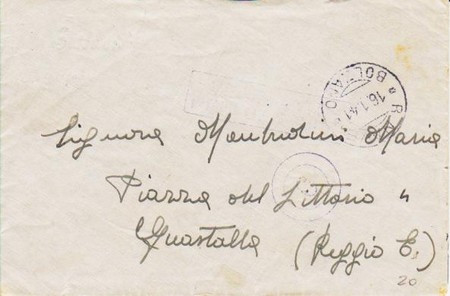 BOLZANO
16.1.41
Signora Maria
Piazza del Littorio "
Guastalla (Reggio E.)
20